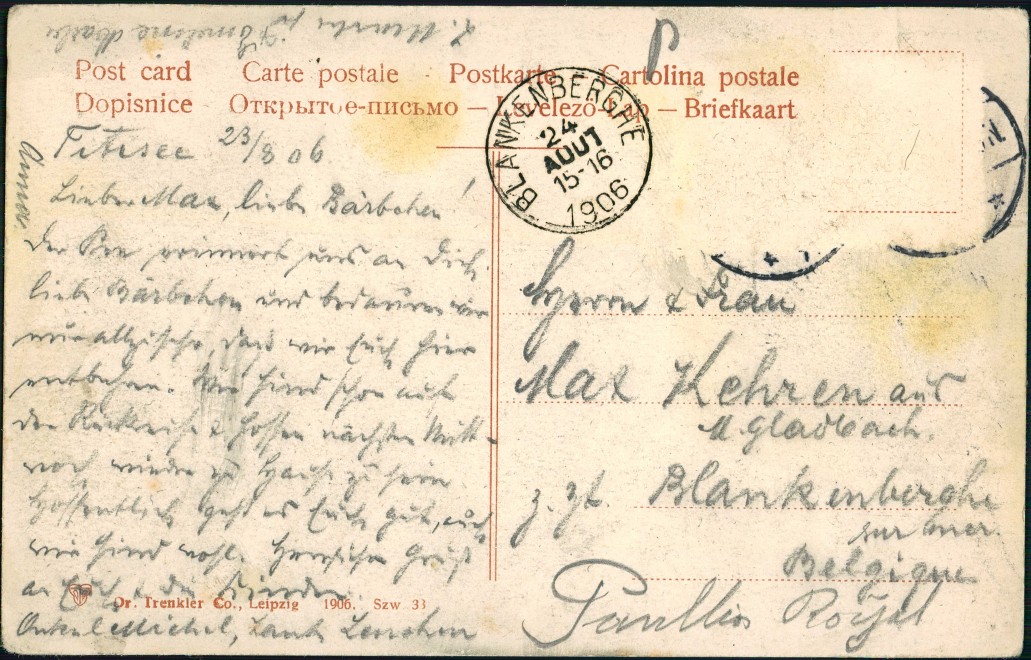 Post card Carte postale Postkarte Cartolina postale
Dopisnice — Открытое-письмо — Levelező-Lap — Briefkaart
BLANKENBERGHE
24
AOUT
15-16
1906
Titisee 23/8 06
Lieber Max, liebe Bärbchen!
Der See erinnert uns an Dich
liebe Bärbchen und bedauern wir
nur allzusehr, dass wir Euch hier
entbehren. Wir sind schon auf
der Rückreise & hoffen nächsten Mitt-
woch wieder zu Hause zu sein
Hoffentlich geht es Euch gut, auch
wir sind wohl. Herzlichen Gruß
an Euch & die Kinder.
Onkel Michel, Tante Lenchen
Anna
Herrn & Frau
Max Kehren aus
M. Gladbach.
z. Zt. Blankenberghe
sur mer.
Belgique
Royal
Dr. Trenkler Co., Leipzig 1906. Szw 33